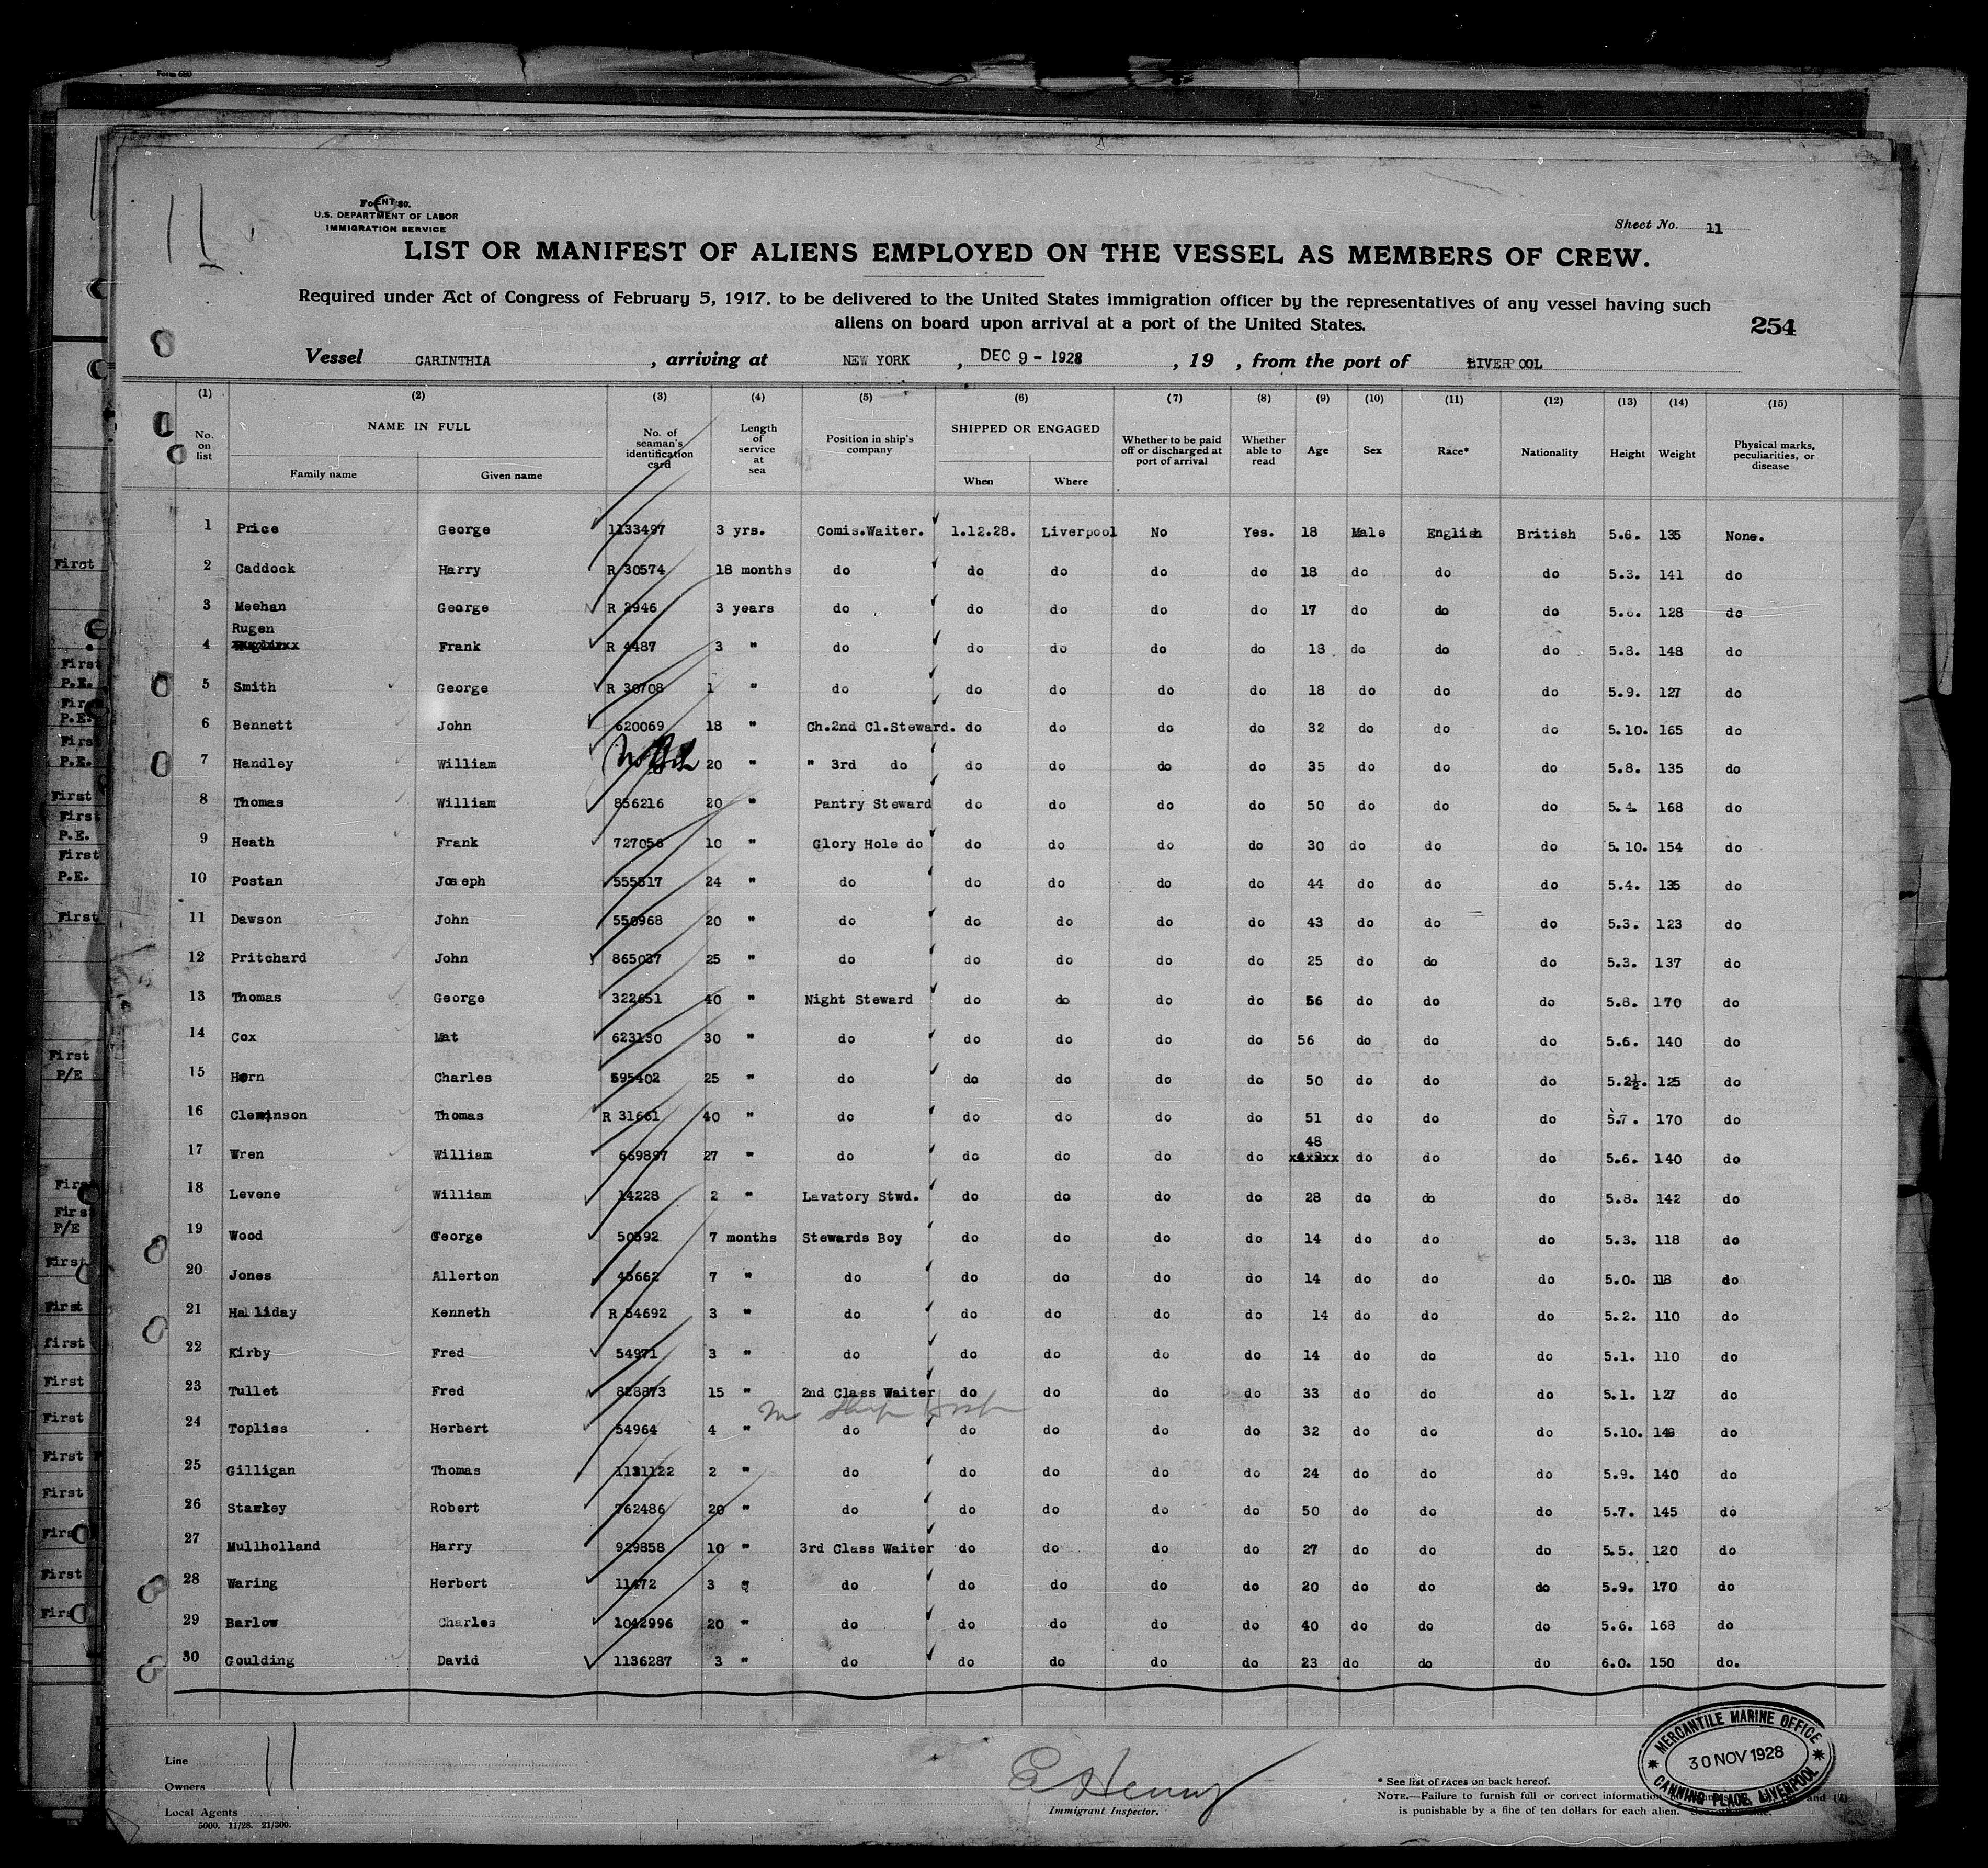 Form 680
Sheet No. 11
U.S. DEPARTMENT OF LABOR
IMMIGRATION SERVICE
11
LIST OR MANIFEST OF ALIENS EMPLOYED ON THE VESSEL AS MEMBERS OF CREW.
Required under Act of Congress of February 5, 1917, to be delivered to the United States immigration officer by the representatives of any vessel having such
aliens on board upon arrival at a port of the United States.
254
Vessel CARINTHIA , arriving at NEW YORK , DEC 9 - 1928 , 19 , from the port of LIVERPOOL
(1) (2) (3) (4) (5) (6) (7) (8) (9) (10) (11) (12) (13) (14) (15)
No. on list NAME IN FULL Family name Given name No. of seaman's identification card Length of service at sea Position in ship's company SHIPPED OR ENGAGED When Where Whether to be paid off or discharged at port of arrival Whether able to read Age Sex Race* Nationality Height Weight Physical marks, peculiarities, or disease
1 Price George 1133497 3 yrs. Comis.Waiter. 1.12.28. Liverpool No Yes. 18 Male English British 5.6. 135 None.
2 Caddock Harry R 30574 18 months do do do do do 18 do do do 5.3. 141 do
3 Meehan George R 2946 3 years do do do do do 17 do do do 5.6. 128 do
Rugen
4 Frank R 4487 3 " do do do do do 18 do do do 5.8. 148 do
5 Smith George R 30708 1 " do do do do do 18 do do do 5.9. 127 do
6 Bennett John 620069 18 " Ch.2nd Cl.Steward. do do do do 32 do do do 5.10. 165 do
7 Handley William 20 " " 3rd do do do do do 35 do do do 5.8. 135 do
8 Thomas William 856216 20 " Pantry Steward do do do do 50 do do do 5.4. 168 do
9 Heath Frank 727056 10 " Glory Hole do do do do do 30 do do do 5.10. 154 do
10 Postan Joseph 555517 24 " do do do do do 44 do do do 5.4. 135 do
11 Dawson John 550968 20 " do do do do do 43 do do do 5.3. 123 do
12 Pritchard John 865037 25 " do do do do do 25 do do do 5.3. 137 do
13 Thomas George 322651 40 " Night Steward do do do do 56 do do do 5.8. 170 do
14 Cox Mat 623130 30 " do do do do do 56 do do do 5.6. 140 do
15 Horn Charles 595402 25 " do do do do do 50 do do do 5.2½. 125 do
16 Cleminson Thomas R 31661 40 " do do do do do 51 do do do 5.7. 170 do
48
17 Wren William 669897 27 " do do do do do do do do 5.6. 140 do
18 Levene William 14228 2 " Lavatory Stwd. do do do do 28 do do do 5.8. 142 do
19 Wood George 50592 7 months Stewards Boy do do do do 14 do do do 5.3. 118 do
20 Jones Allerton 45662 7 " do do do do do 14 do do do 5.0. 118 do
21 Halliday Kenneth R 54692 3 " do do do do do 14 do do do 5.2. 110 do
22 Kirby Fred 54971 3 " do do do do do 14 do do do 5.1. 110 do
23 Tullet Fred 828873 15 " 2nd Class Waiter do do do do 33 do do do 5.1. 127 do
24 Topliss Herbert 54964 4 " do do do do do 32 do do do 5.10. 149 do
25 Gilligan Thomas 1121122 2 " do do do do do 24 do do do 5.9. 140 do
26 Starkey Robert 762486 20 " do do do do do 50 do do do 5.7. 145 do
27 Mullholland Harry 929858 10 " 3rd Class Waiter do do do do 27 do do do 5.5. 120 do
28 Waring Herbert 11472 3 " do do do do do 20 do do do 5.9. 170 do
29 Barlow Charles 1042996 20 " do do do do do 40 do do do 5.6. 168 do
30 Goulding David 1136287 3 " do do do do do 23 do do do 6.0. 150 do.
Line
11
Owners
Local Agents
5000. 11/28. 21/309.
E Henny
Immigrant Inspector.
* See list of races on back hereof.
NOTE.—Failure to furnish full or correct information
is punishable by a fine of ten dollars for each alien.
MERCANTILE MARINE OFFICE
30 NOV 1928
CANNING PLACE, LIVERPOOL
First
First
P.E.
First
P.E.
First
P.E.
First
First
P.E.
First
P.E.
First
First
P/E
First
First
P/E
First
First
first
First
First
First
First
First
First
First